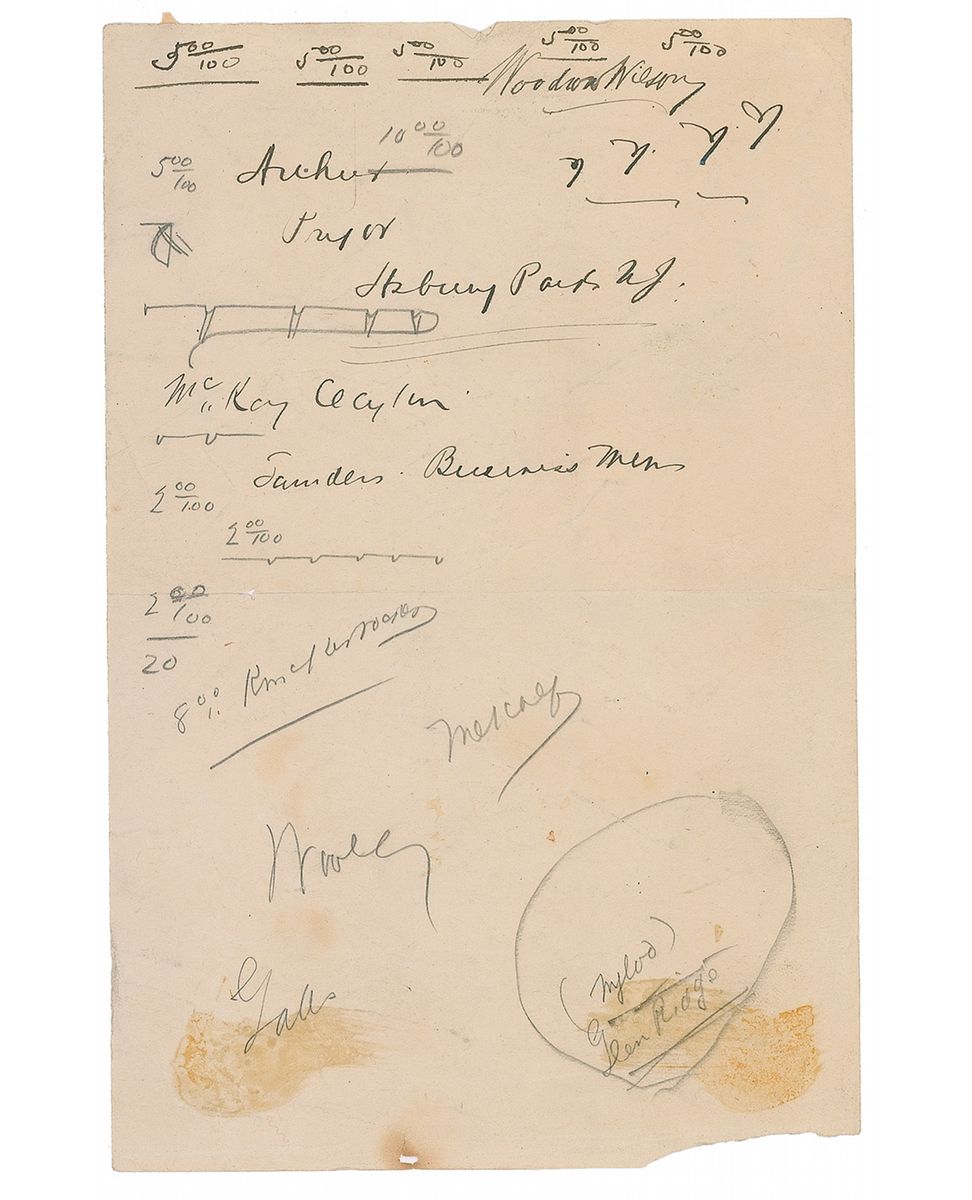 5 00/100 5 00/100 5 00/100 5 00/100 5 00/100
Woodrow Wilson
10 00/100
5 00/100 Arthur
Pryor
Asbury Park NJ.
Mc Kay
Business Men
2 00/100
2 00/100
2 00/100
20
8 00 Knickerbocker
Metcalf
Woolly
Glen Ridge